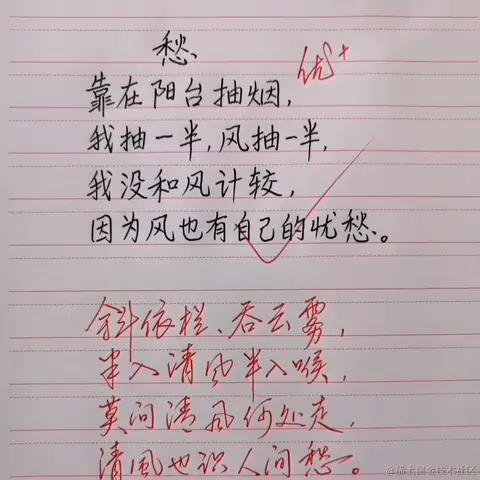 愁
优+
靠在阳台抽烟，
我抽一半，风抽一半，
我没和风计较，
因为风也有自己的忧愁。
斜依栏、吞云雾，
半入清风半入喉，
莫问清风何处走，
清風也识人间愁。
@稀土掘金技术社区